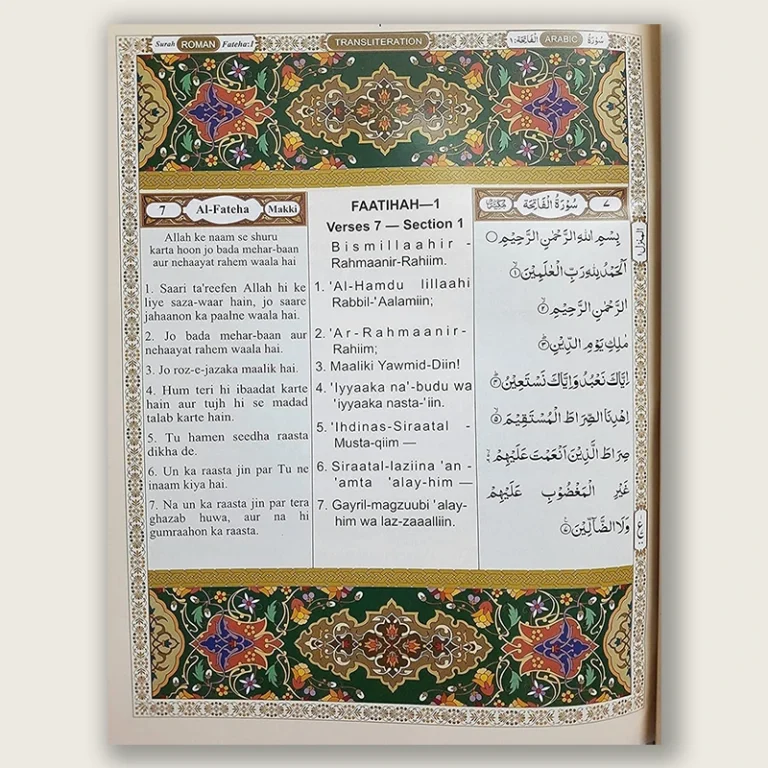 Surah ROMAN Fateha:1
TRANSLITERATION
اَلْفَاتِحَة:١ ARABIC سُوْرَةُ
7 Al-Fateha Makki
Allah ke naam se shuru
karta hoon jo bada mehar-baan
aur nehaayat rahem waala hai
1. Saari ta'reefen Allah hi ke
liye saza-waar hain, jo saare
jahaanon ka paalne waala hai.
2. Jo bada mehar-baan aur
nehaayat rahem waala hai.
3. Jo roz-e-jazaka maalik hai.
4. Hum teri hi ibaadat karte
hain aur tujh hi se madad
talab karte hain.
5. Tu hamen seedha raasta
dikha de.
6. Un ka raasta jin par Tu ne
inaam kiya hai.
7. Na un ka raasta jin par tera
ghazab huwa, aur na hi
gumraahon ka raasta.
FAATIHAH—1
Verses 7 — Section 1
Bismillaahir -
Rahmaanir-Rahiim.
1. 'Al-Hamdu lillaahi
Rabbil-'Aalamiin;
2. 'Ar-Rahmaanir-
Rahiim;
3. Maaliki Yawmid-Diin!
4. 'Iyyaaka na'-budu wa
'iyyaaka nasta-'iin.
5. 'Ihdinas-Siraatal -
Musta-qiim —
6. Siraatal-laziina 'an -
'amta 'alay-him —
7. Gayril-magzuubi 'alay-
him wa laz-zaaalliin.
٧ سُوْرَةُ الْفَاتِحَة
بِسْمِ اللهِ الرَّحْمٰنِ الرَّحِيْمِ
اَلْحَمْدُ لِلّٰهِ رَبِّ الْعٰلَمِيْنَ ۙ﴿١﴾
الرَّحْمٰنِ الرَّحِيْمِ ۙ﴿٢﴾
مٰلِكِ يَوْمِ الدِّيْنِ ﴿٣﴾
اِيَّاكَ نَعْبُدُ وَاِيَّاكَ نَسْتَعِيْنُ ﴿٤﴾
اِهْدِنَا الصِّرَاطَ الْمُسْتَقِيْمَ ۙ﴿٥﴾
صِرَاطَ الَّذِيْنَ اَنْعَمْتَ عَلَيْهِمْ
غَيْرِ الْمَغْضُوْبِ عَلَيْهِمْ
وَلَا الضَّآلِّيْنَ
ع